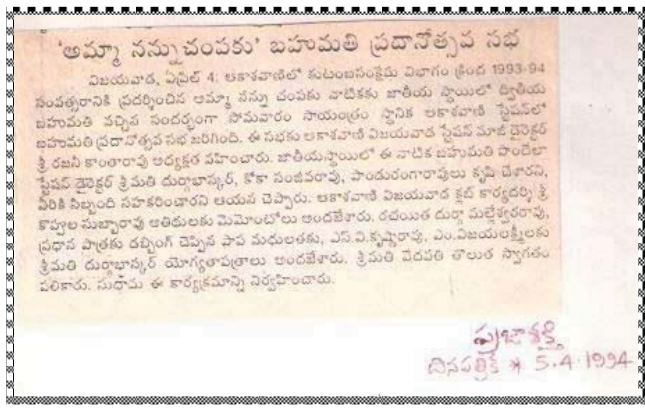 'అమ్మా నన్నుచంపకు' బహుమతి ప్రదానోత్సవ సభ
విజయవాడ, ఏప్రిల్ 4: ఆకాశవాణిలో కుటుంబసంక్షేమ విభాగం క్రింద 1993-94
సంవత్సరానికి ప్రదర్శించిన అమ్మా నన్ను చంపకు నాటికకు జాతీయ స్థాయిలో ద్వితీయ
బహుమతి వచ్చిన సందర్భంగా సోమవారం సాయంత్రం స్థానిక ఆకాశవాణి స్టేషన్‌లో
బహుమతి ప్రదానోత్సవ సభ జరిగింది. ఈ సభకు ఆకాశవాణి విజయవాడ స్టేషన్ మాజీ డైరెక్టర్
శ్రీ రజనీ కాంతారావు అధ్యక్షత వహించారు. జాతీయస్థాయిలో ఈ నాటిక బహుమతి పొందేలా
స్టేషన్ డైరెక్టర్ శ్రీమతి దుర్గాభాస్కర్, కోకా సంజీవరావు, పాండురంగారావులు కృషి చేశారని,
వీరికి సిబ్బంది సహకరించారని ఆయన చెప్పారు. ఆకాశవాణి విజయవాడ క్లబ్ కార్యదర్శి శ్రీ
కొప్పుల సుబ్బారావు అతిథులకు మెమోంటోలు అందజేశారు. రచయిత దుర్గా మల్లేశ్వరరావు,
ప్రధాన పాత్రకు డబ్బింగ్ చెప్పిన పాప మధులతకు, ఎస్.వి.కృష్ణారావు, ఎం.విజయలక్ష్మీలకు
శ్రీమతి దుర్గాభాస్కర్ యోగ్యతాపత్రాలు అందజేశారు. శ్రీమతి వేదవతి తొలుత స్వాగతం
పలికారు. సుధామ ఈ కార్యక్రమాన్ని నిర్వహించారు.
ప్రజాశక్తి
దినపత్రిక * 5.4.1994